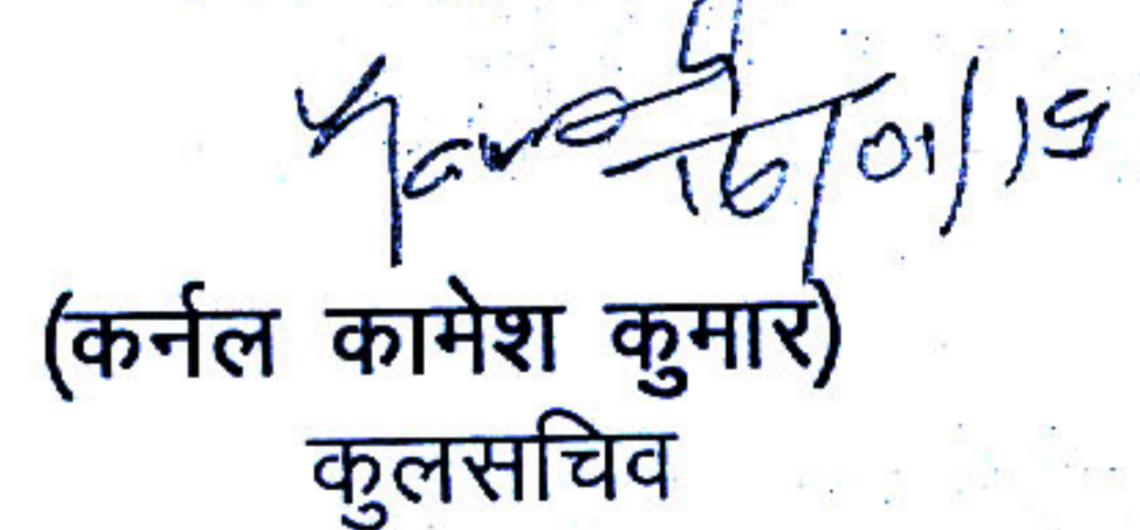 16/01/19
(कर्नल कामेश कुमार)
कुलसचिव